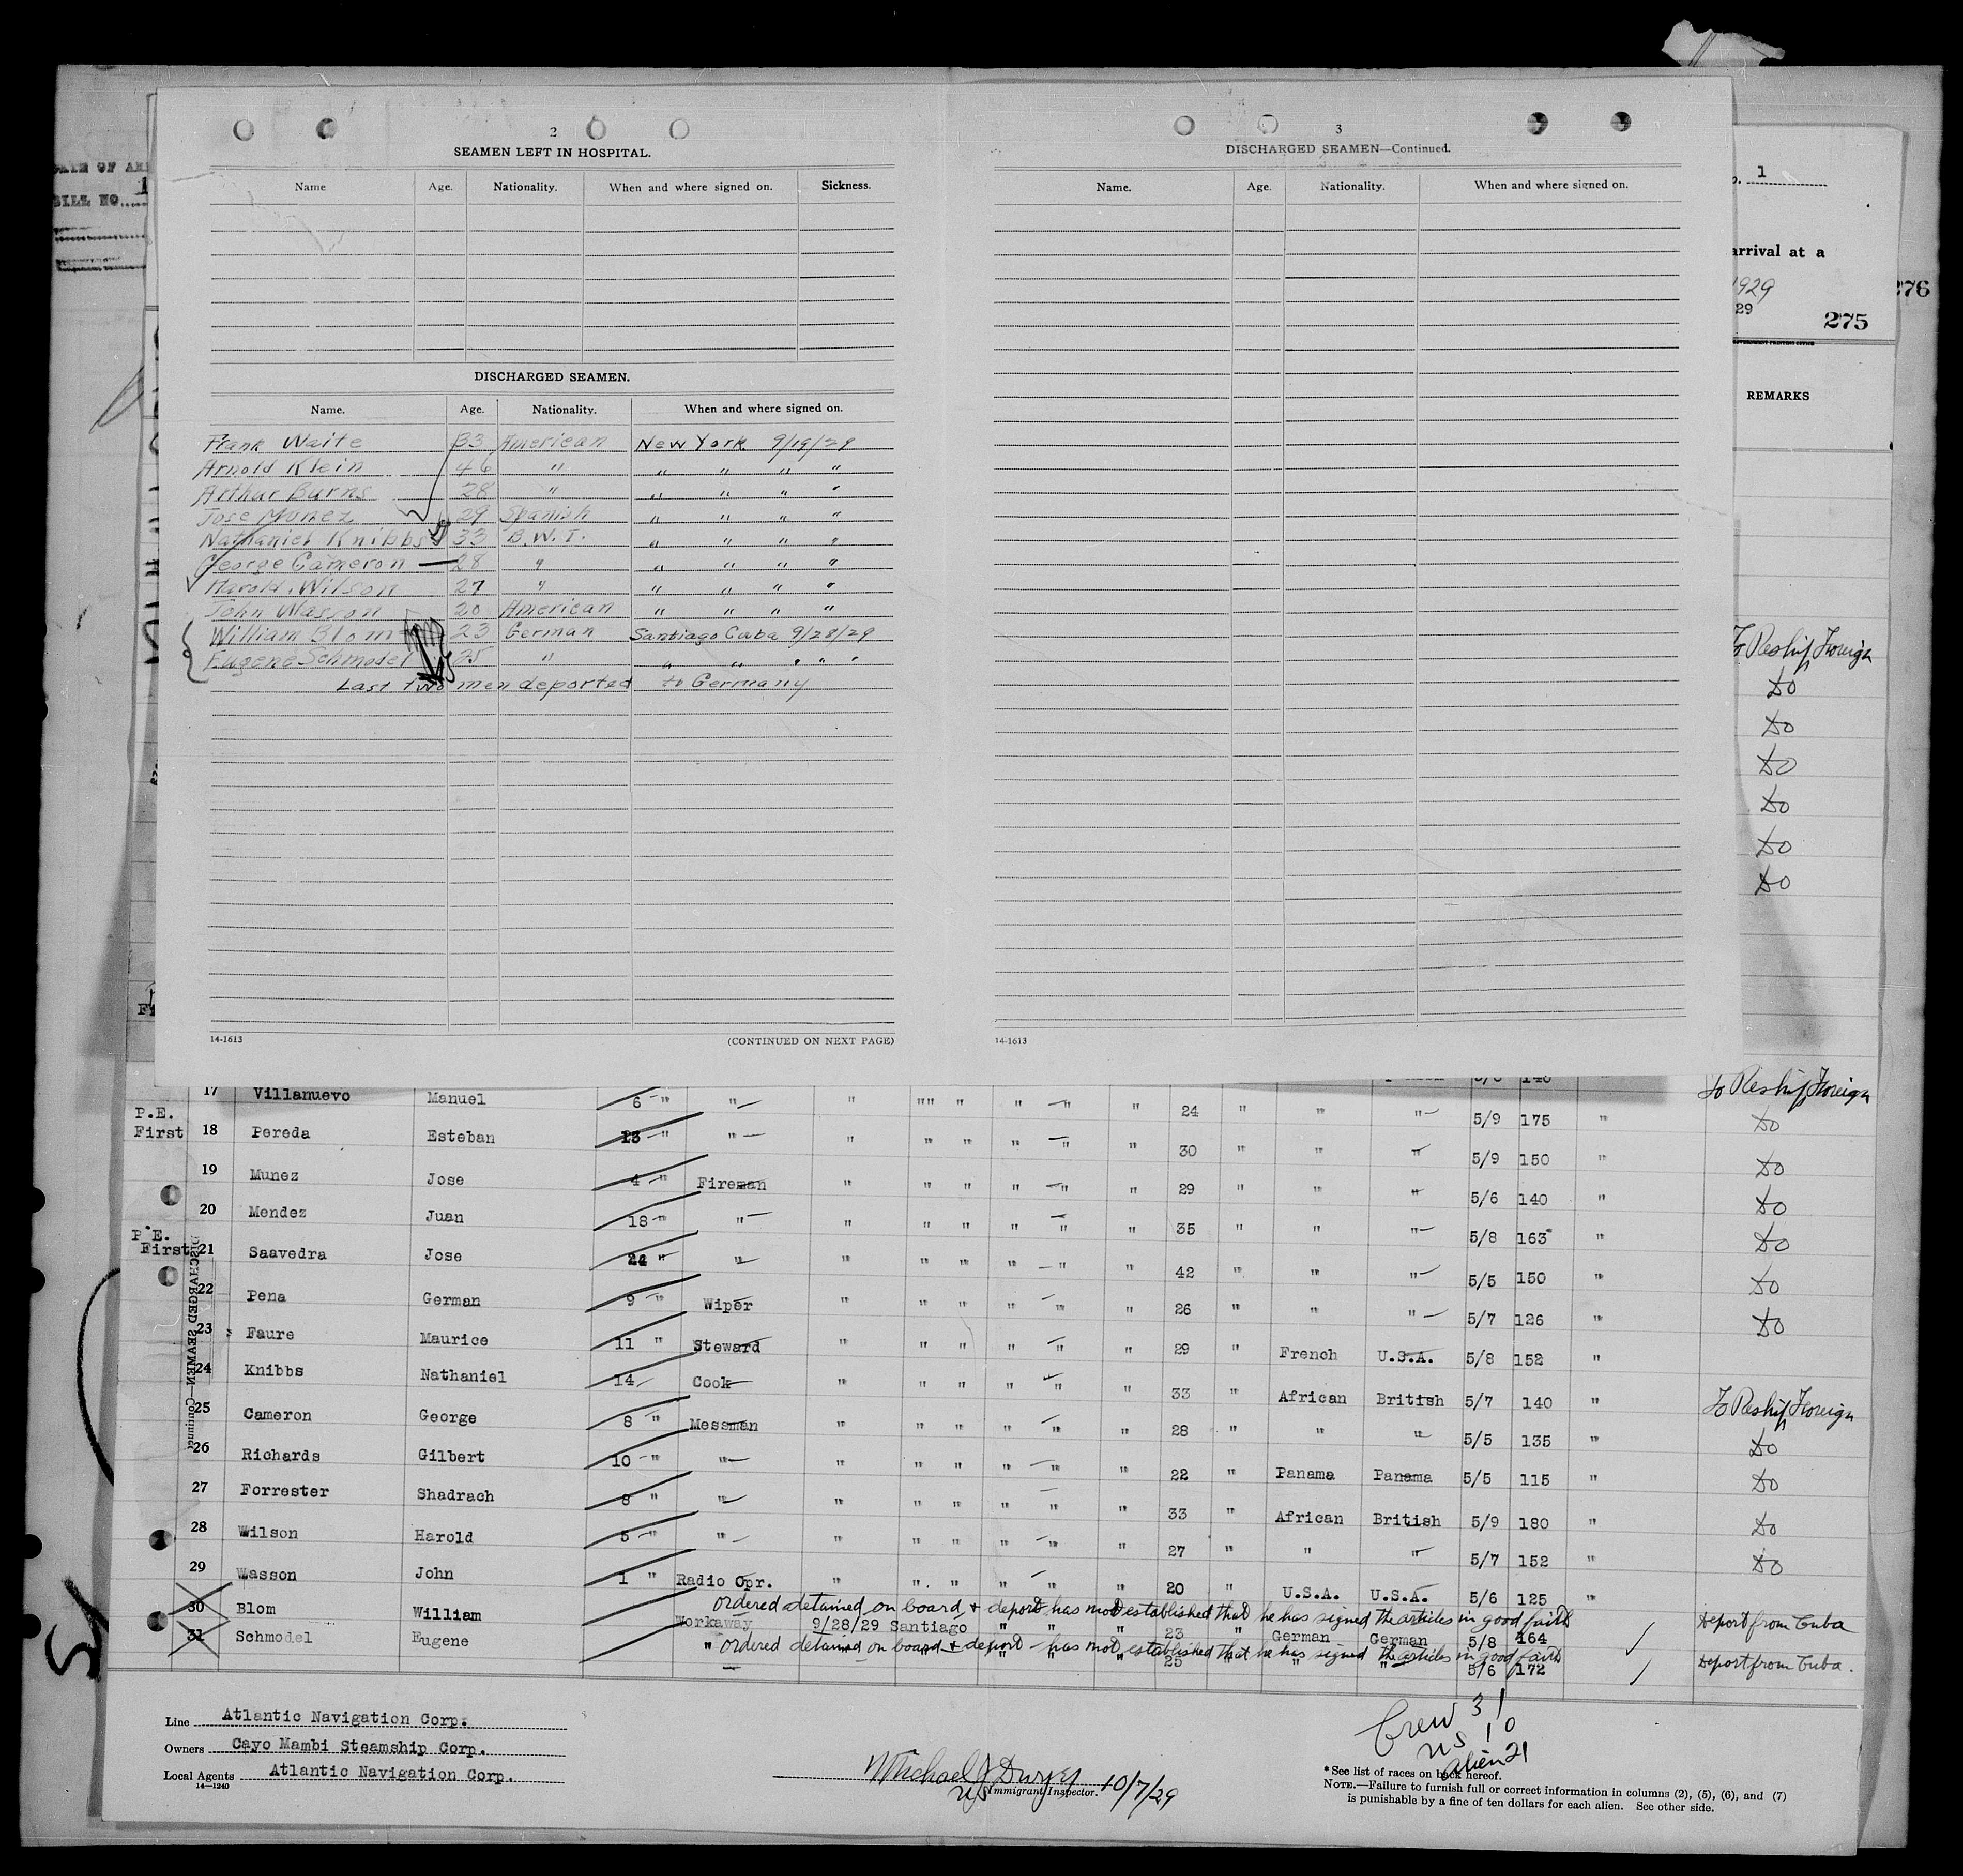 2
SEAMEN LEFT IN HOSPITAL.
Name Age. Nationality. When and where signed on. Sickness.
DISCHARGED SEAMEN.
Name. Age. Nationality. When and where signed on.
Frank Waite 33 American New York 9/19/29
Arnold Klein 46 " " " " "
Arthur Burns 28 " " " " "
Jose Munez 29 Spanish " " " "
Nathaniel Knibbs 33 B.W.I. " " " "
George Cameron 28 " " " " "
Harold Wilson 27 " " " " "
John Wasson 20 American " " " "
William Blom 23 German Santiago Cuba 9/28/29
Eugene Schmodel 25 " " " " " "
Last two men deported to Germany
14-1613 (CONTINUED ON NEXT PAGE)
3
DISCHARGED SEAMEN—Continued.
Name. Age. Nationality. When and where signed on.
14-1613
BILL NO.
1
arrival at a
1929
29
275
276
REMARKS
To Reship Foreign
Do
Do
Do
Do
Do
Do
17 Villanuevo Manuel 6 " " " " " " " " " 24 " " " 5/9 175 " To Reship Foreign
P.E.
First 18 Pereda Esteban 13 " " " " " " " " 30 " " " 5/9 150 " Do
19 Munez Jose 4 " Fireman " " " " " " 29 " " " 5/6 140 " Do
20 Mendez Juan 18 " " " " " " " " 35 " " " 5/8 163 " Do
P.E.
First 21 Saavedra Jose 24 " " " " " " " " 42 " " " 5/5 150 " Do
22 Pena German 9 " Wiper " " " " " " 26 " " " 5/7 126 " Do
23 Faure Maurice 11 " Steward " " " " " " 29 " French U.S.A. 5/8 152 " Do
24 Knibbs Nathaniel 14 Cook " " " " " " 33 " African British 5/7 140 " To Reship Foreign
25 Cameron George 8 " Messman " " " " " " 28 " " " 5/5 135 " Do
26 Richards Gilbert 10 " " " " " " " " 22 " Panama Panama 5/5 115 " Do
27 Forrester Shadrach 8 " " " " " " " " 33 " African British 5/9 180 " Do
28 Wilson Harold 5 " " " " " " " " 27 " " " 5/7 152 " Do
29 Wasson John 1 " Radio Opr. " " " " " " 20 " U.S.A. U.S.A. 5/6 125 "
ordered detained on board & deport has not established that he has signed the articles in good faith
30 Blom William Workaway 9/28/29 Santiago " " " 23 " German German 5/8 164 Deport from Cuba
" ordered detained on board & deport - has not established that he has signed the articles in good faith
31 Schmodel Eugene " " " " " 25 " " " 5/6 172 Deport from Cuba.
DISCHARGED SEAMEN—Continued
Line Atlantic Navigation Corp.
Owners Cayo Mambi Steamship Corp.
Local Agents Atlantic Navigation Corp.
14—1240
Michael J Dwyer
US Immigrant Inspector. 10/7/29
Crew 31
US 10
alien 21
*See list of races on back hereof.
NOTE.—Failure to furnish full or correct information in columns (2), (5), (6), and (7)
is punishable by a fine of ten dollars for each alien. See other side.